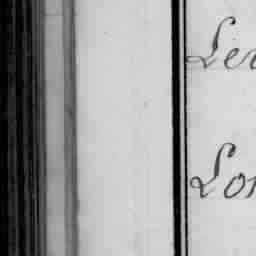 Ler
Lon